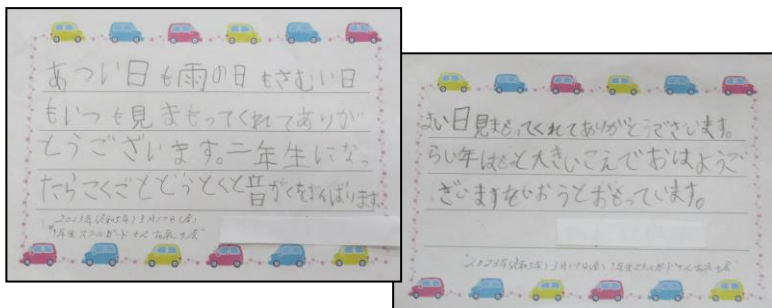 あつい日も雨の日もさむい日
もいつも見まもってくれてありが
とうございます。二年生になっ
たらこくごとどうとくと音がくをがんばります
2023年(令和5年)3月17日(金)
"1年生スクールガードさん
日見まもってくれてありがとうございます。
らい年はもっと大きいこえでおはようご
ざいますをいおうとおもっています。
2023年(令和5年)3月17日(金)1年生スクールガードさん